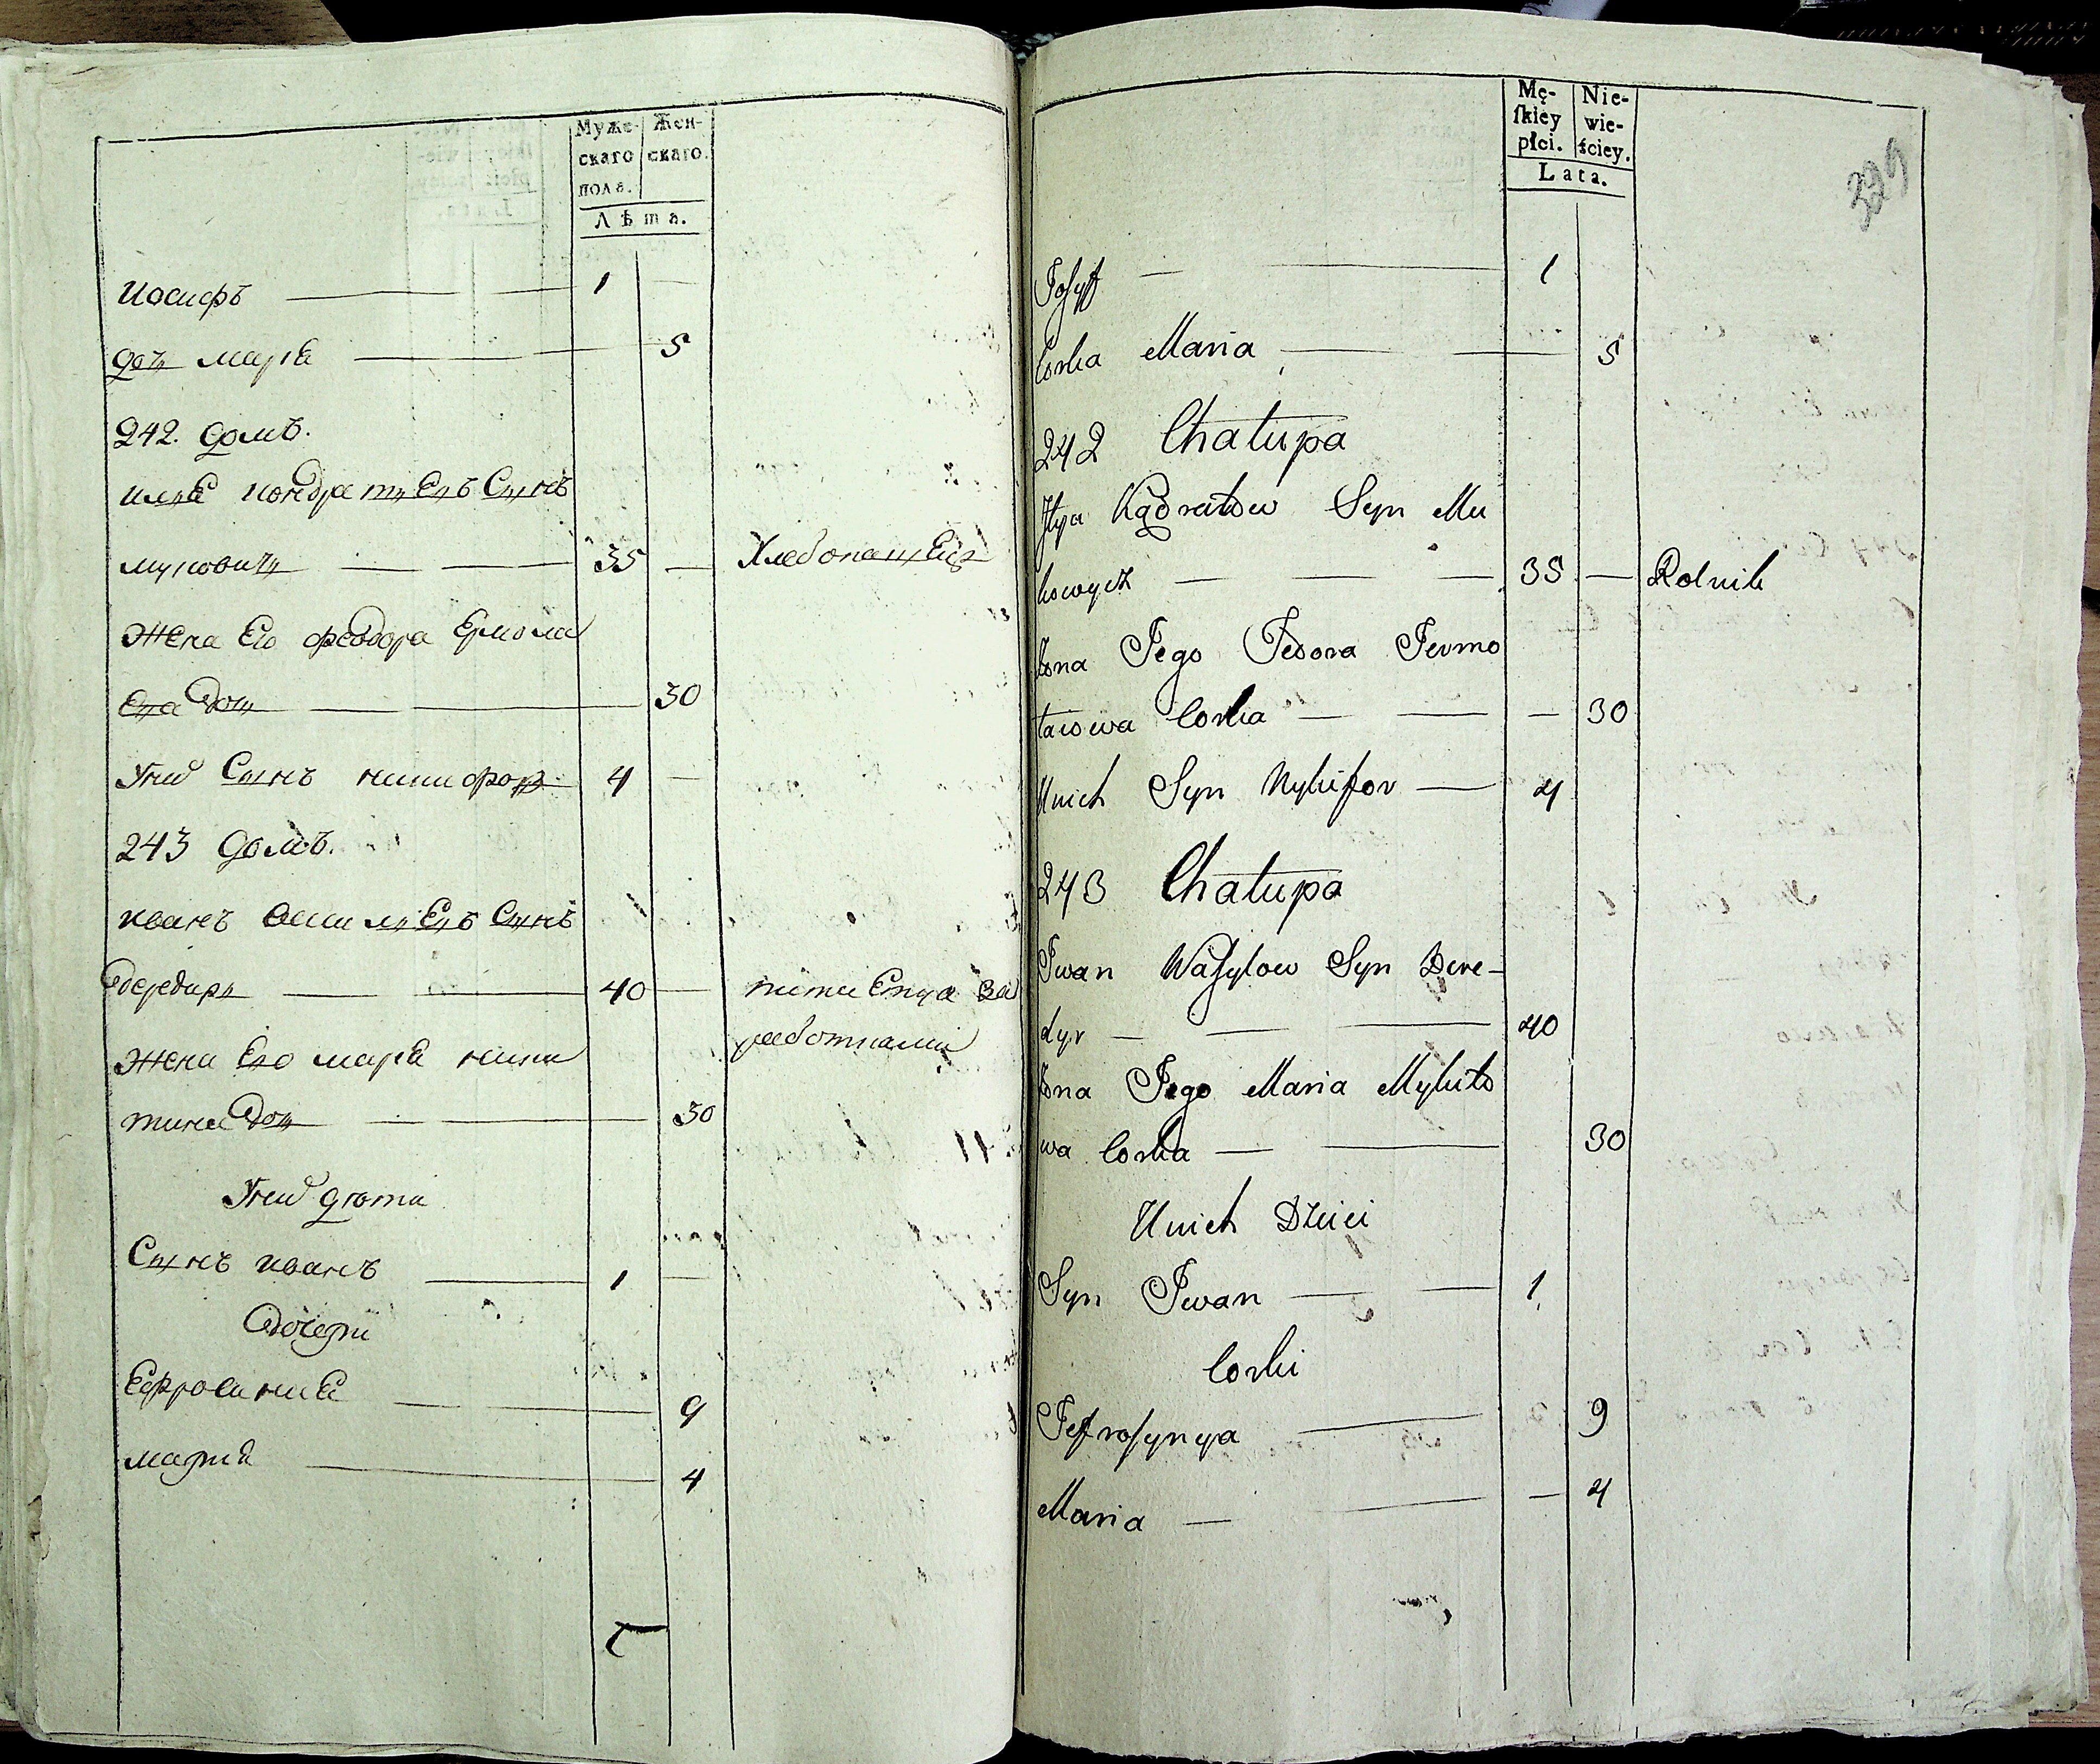 Муже- Жен-
скаго скаго.
пола.
Лѣта.
Иосифъ 1
дочь Марѣя 5
242. домъ.
Илья Кондратьевъ Сынъ
Муковичь 35 Хлебопашецъ
Жена Его Феодора Ермола
ева дочь 30
У них Сынъ Никифор 4
243 домъ.
Иванъ Васильевъ Сынъ
Дередирь 40 питается за
работками
Жена Его Марья Ники
тина дочь 30
У них дѣти
Сынъ Иванъ 1
Дочери
Ефросиния 9
Мария 4
Mę- Nie-
ſkiey wie-
płci. ściey.
Lata.
329
Joſyf 1
Corka Maria 5
242 Chałupa
Ilya Kądratow Syn Mu
kowycz 35 Rolnik
Żona Jego Fedora Jermo
łaiowa Corka 30
U nich Syn Nykifor 4
243 Chałupa
Iwan Waſylow Syn Dere-
dyr 40
Żona Jego Maria Mykito
wa Corka 30
U nich Dzieci
Syn Iwan 1
Corki
Jefroſynya 9
Maria 4